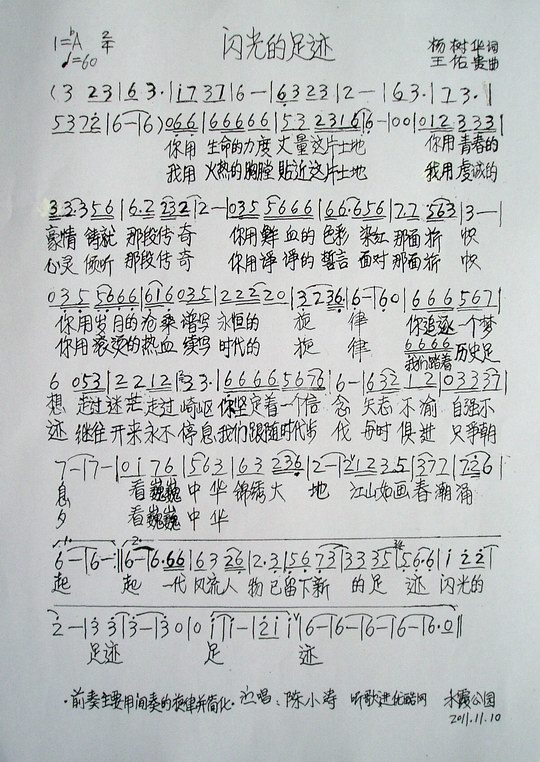 1=♭A 2/4 闪光的足迹 杨树华词
♩=60 王佑贵曲
(3 23|63·|1737|6-|6323|2-|63·|73·|
5372|6-|6)066|66666|53 2316|6-|00|012 333|
你用 生命的力度 丈量这片土地 你用 青春的
我用 火热的胸膛 贴近这片土地 我用 虔诚的
33·356|6·2 232|2-|035 5666|66·656|77 563|3-|
豪情 铸就 那段传奇 你用鲜血的色彩 染红 那面旗帜
心灵 倾听 那段传奇 你用铮铮的誓言 面对 那面旗帜
035 5666|616035|22220|3236·|6-|60|666567|
你用岁月的沧桑 谱写 永恒的 旋 律 你追逐一个梦
你用滚烫的热血 续写 时代的 旋 律 我们踏着 历史足
6 053|2212|33·|66665676|6-|632 12|03337|
想 走过迷茫 走过崎岖 你坚定着一个信 念 矢志不渝 自强不
迹 继往开来 永不停息 我们跟随时代步 伐 与时俱进 只争朝
7-|7-|0176|563|63 236|2-|21235|377|726|
息 看巍巍中华 锦绣大 地 江山如画 春潮涌
夕 看巍巍中华
6-|6-:|6-|6·66|63 26|2·3|5673|3335|56·6|122|
起 起 一代风流人 物 已留下新 的足 迹 闪光的
2-|33|3-|30|0 1|1-|211|6-|6-|6-|6-|6·0‖
足迹 足 迹
·前奏主要用间奏的旋律并简化· 演唱：陈小涛 听歌进优酷网 水霞公园
2011.11.10